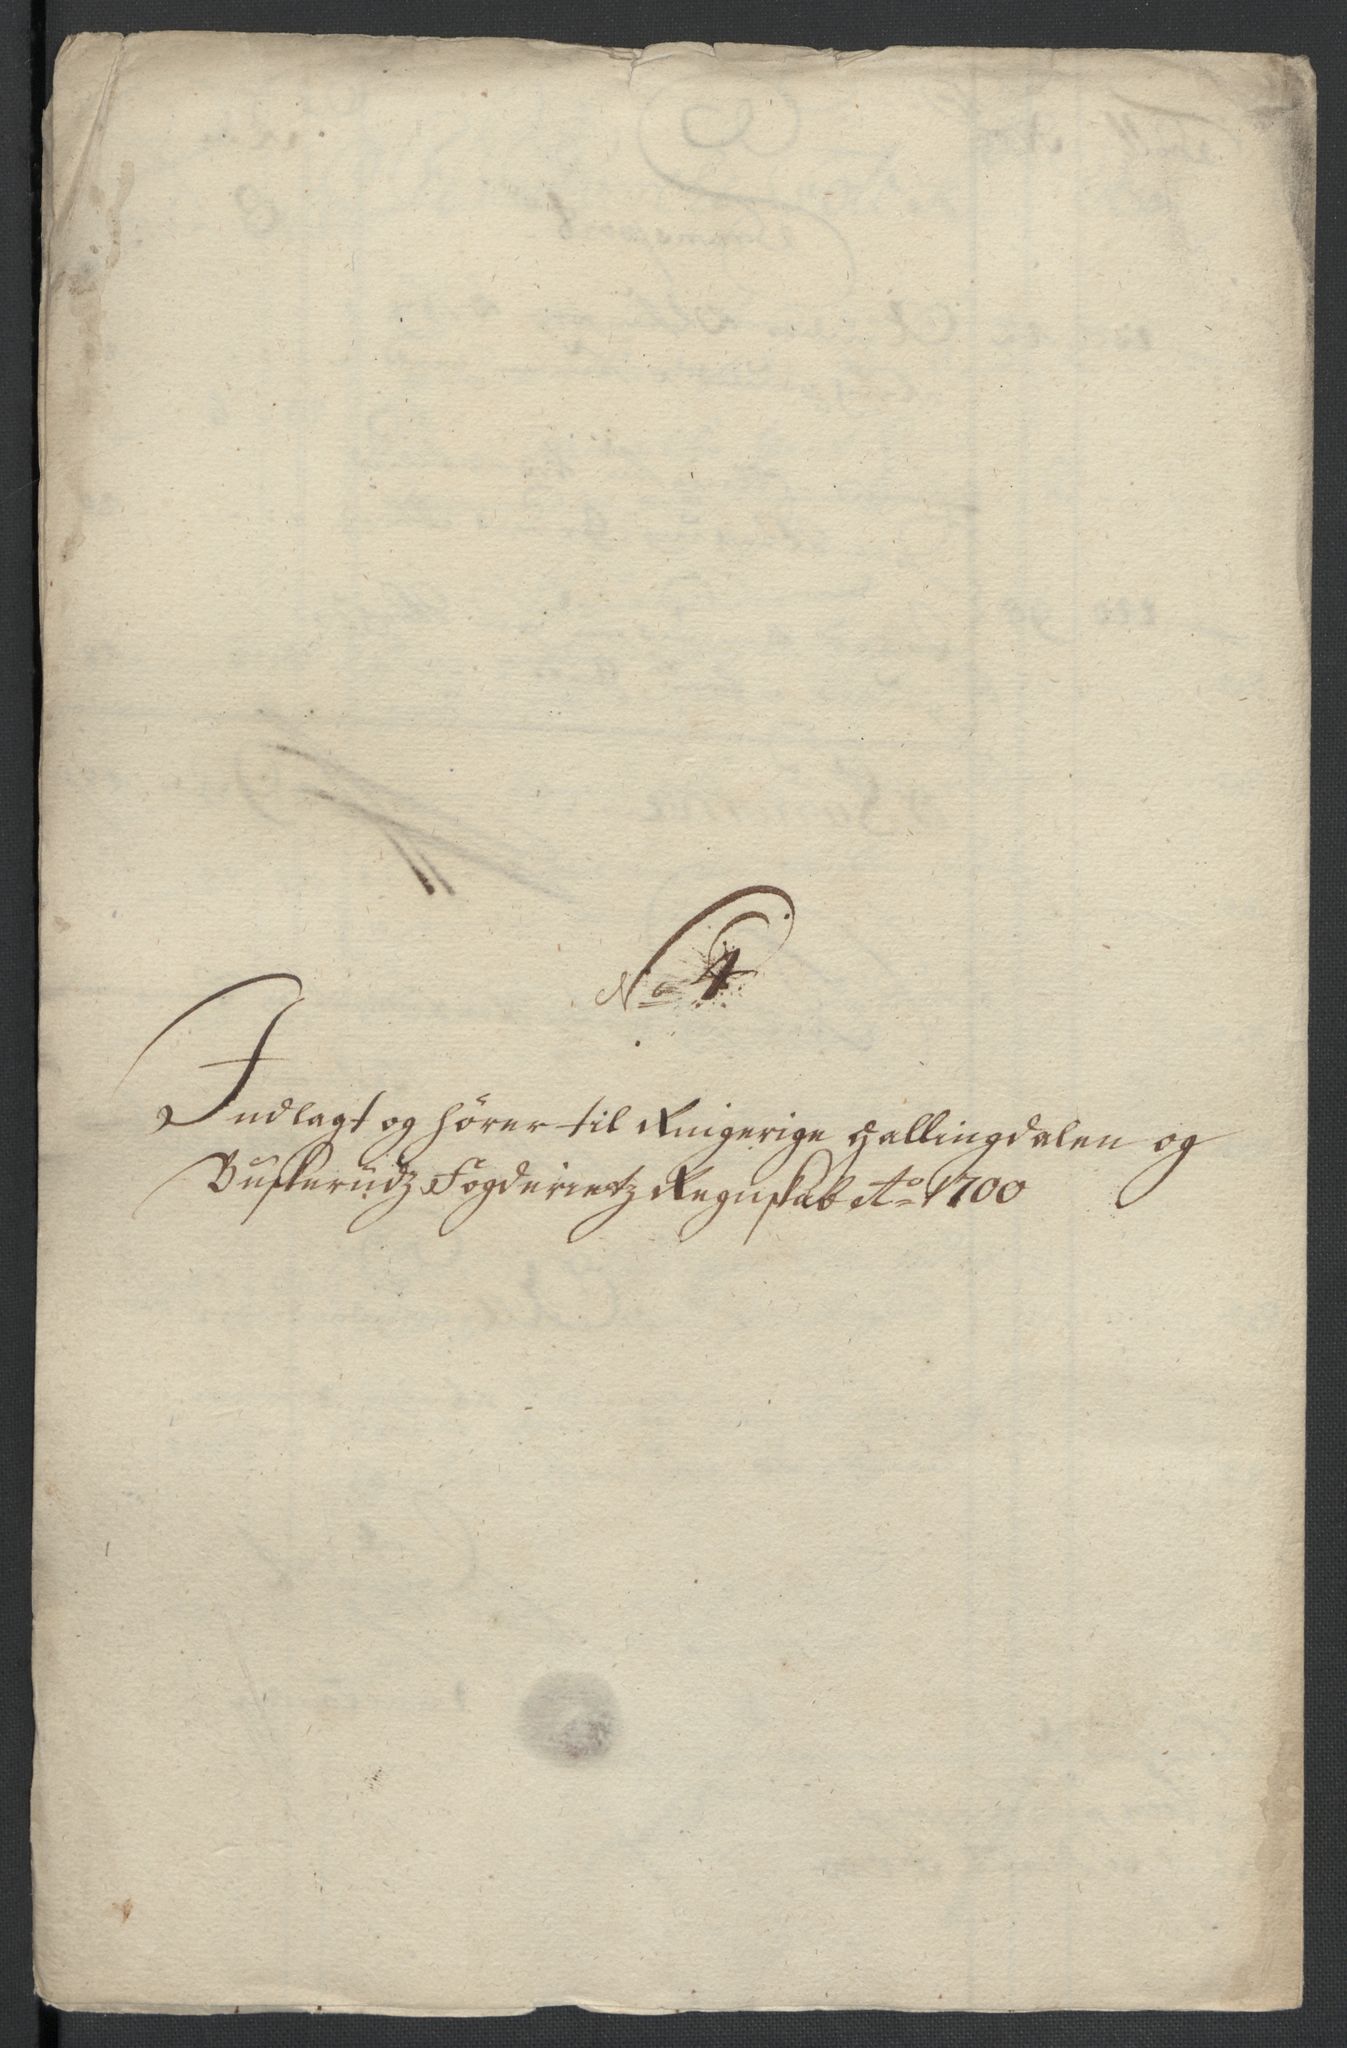 No 4
Indlagt og hörer til Ringerige Hallingdalen og
Buskerudz Fogderietz Regnskab Ao 1700